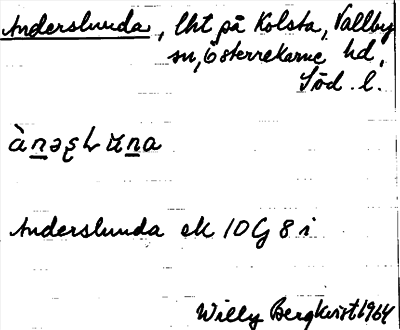 Anderslunda, lht på Kolsta, Vallby
sn, Österrekarne hd,
Söd. l.
Anderslunda ek 10G 8 i
Willy Bergkvist 1964